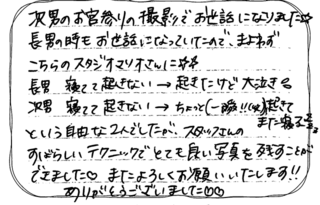 次男のお宮参りの撮影でお世話になりました☆
長男の時もお世話になっていたので、まよわず
こちらのスタジオマリオさんに☆☆
長男 寝てて起きない → 起きたけど大泣き
次男 寝てて起きない → ちょっと(一瞬!!(笑))起きて
また寝る
という自由な2人でしたが、スタッフさんの
すばらしいテクニックでとても良い写真を残すことが
できました♡ またよろしくお願いいたします!!
ありがとうございました♡♡